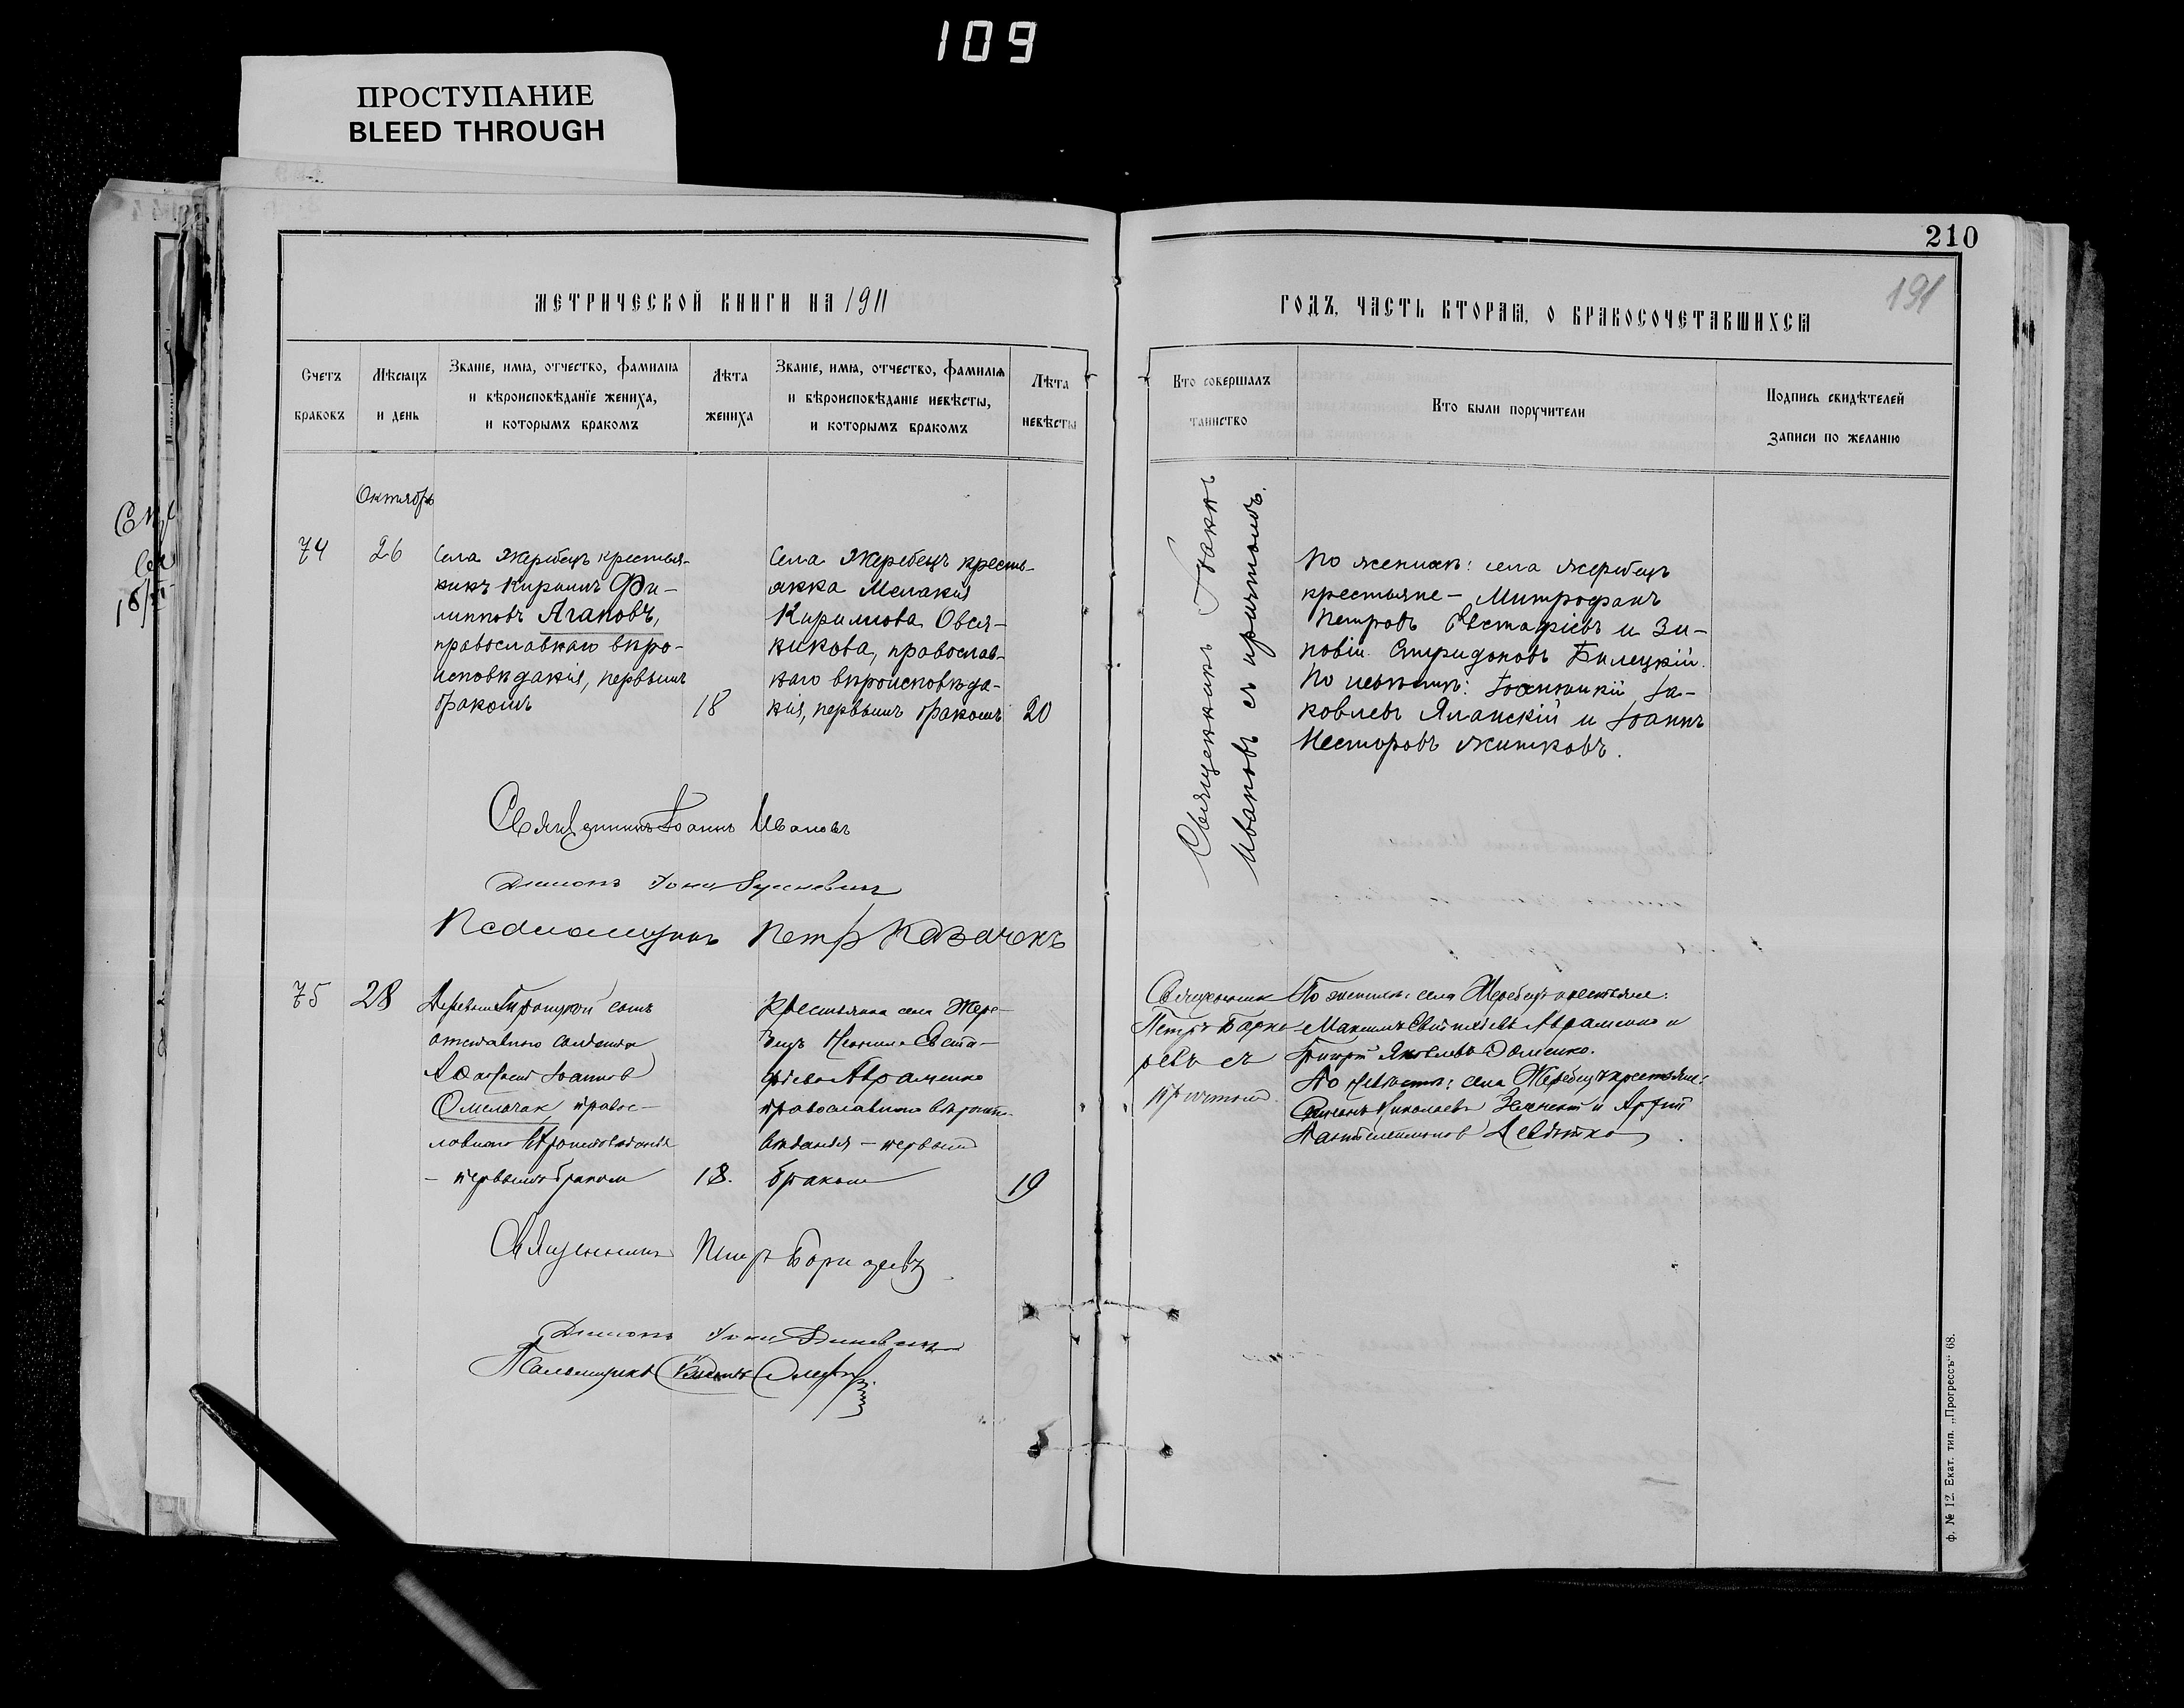 109
ПРОСТУПАНИЕ
BLEED THROUGH
210
191
МЕТРИЧЕСКОЙ КНИГИ НА 1911
ГОДЪ, ЧАСТЬ ВТОРАЯ, О БРАКОСОЧЕТАВШИХСЯ
Счетъ браковъ
Мѣсяцъ и день
Званіе, имя, отчество, фамилія
и вѣроисповѣданіе жениха,
и которымъ бракомъ
Лѣта жениха
Званіе, имя, отчество, фамилія
и вѣроисповѣданіе невѣсты,
и которымъ бракомъ
Лѣта невѣсты
Кто совершалъ
таинство
Кто были поручители
Подпись свидѣтелей
записи по желанію
Октябрь
74
26
Села Жеребецъ крестья-
нинъ Кириллъ Фи-
липповъ Агаповъ,
православнаго вѣро-
исповѣданія, первымъ
бракомъ
18
Села Жеребецъ кресть-
янка Меланія
Кирилова Овся-
никова, православ-
наго вѣроисповѣда-
нія, первымъ бракомъ
20
Священникъ Іоаннъ
Ивановъ съ причтомъ.
По женихѣ: села Жеребецъ
крестьяне - Митрофанъ
Петровъ Евстафіевъ и Зи-
новій Спиридоновъ Билецкій.
По невѣстѣ: Іоанникій Іа-
ковлевъ Яланскій и Іоаннъ
Несторовъ Житковъ.
Священникъ Іоаннъ Ивановъ
Діаконъ Іона
Псаломщикъ Петръ Казачекъ
75
28
Деревни сынъ
отставного солдата
Іоанновъ
Омельчак правос-
лавнаго вѣроисповѣданія
- первымъ бракомъ
18.
Крестьянка села Жере-
бецъ Евста-
фіева Авраменко
православнаго вѣроиспо-
вѣданія - первымъ
бракомъ
19
Священникъ
Петръ
съ
причтомъ
По женихѣ: села Жеребецъ крестьяне:
Максимъ Евстафіевъ Авраменко и
Яковлевъ Доменко.
По невѣстѣ: села Жеребецъ крестьяне:
Николаевъ и
Пантелеимоновъ Девятко
Священникъ Петръ
Діаконъ Іона
Псаломщикъ
ф. № 12. Екат. тип. „Прогрессъ“ 68.